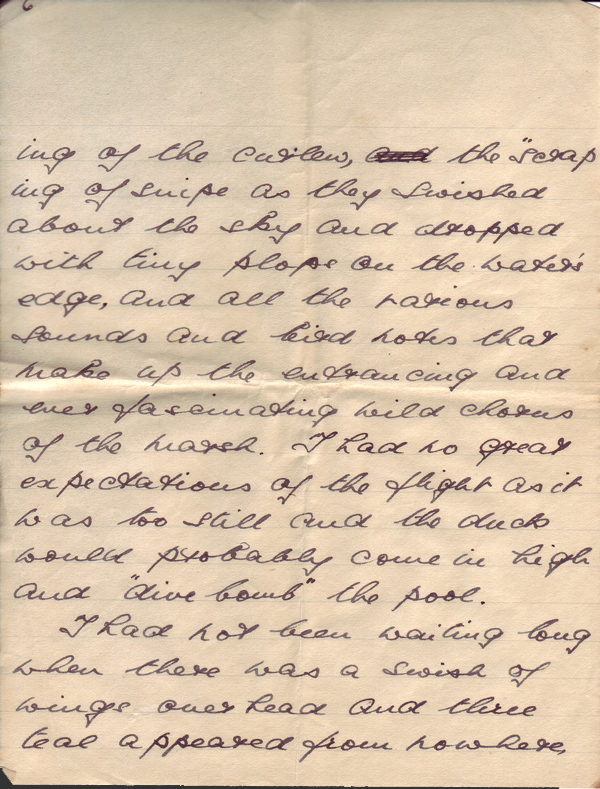 6
ing of the curlew, and the "scrap
ing of snipe as they swished
about the sky and dropped
with tiny plops on the water's
edge, and all the various
sounds and bird notes that
make up the entrancing and
ever fascinating wild chorus
of the marsh. I had no great
expectations of the flight as it
was too still and the duck
would probably come in high
and "dive bomb" the pool.
I had not been waiting long
when there was a swish of
wings overhead and three
teal appeared from nowhere,